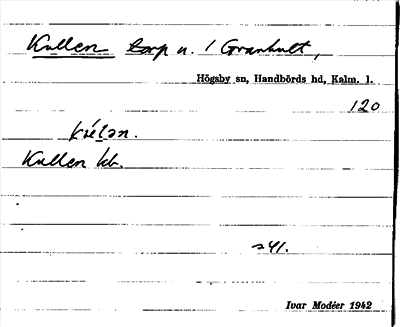 Kullen torp u. / Granhult,
Högsby sn, Handbörds hd, Kalm. l.
120
Kullen kb.
241.
Ivar Modéer 1942